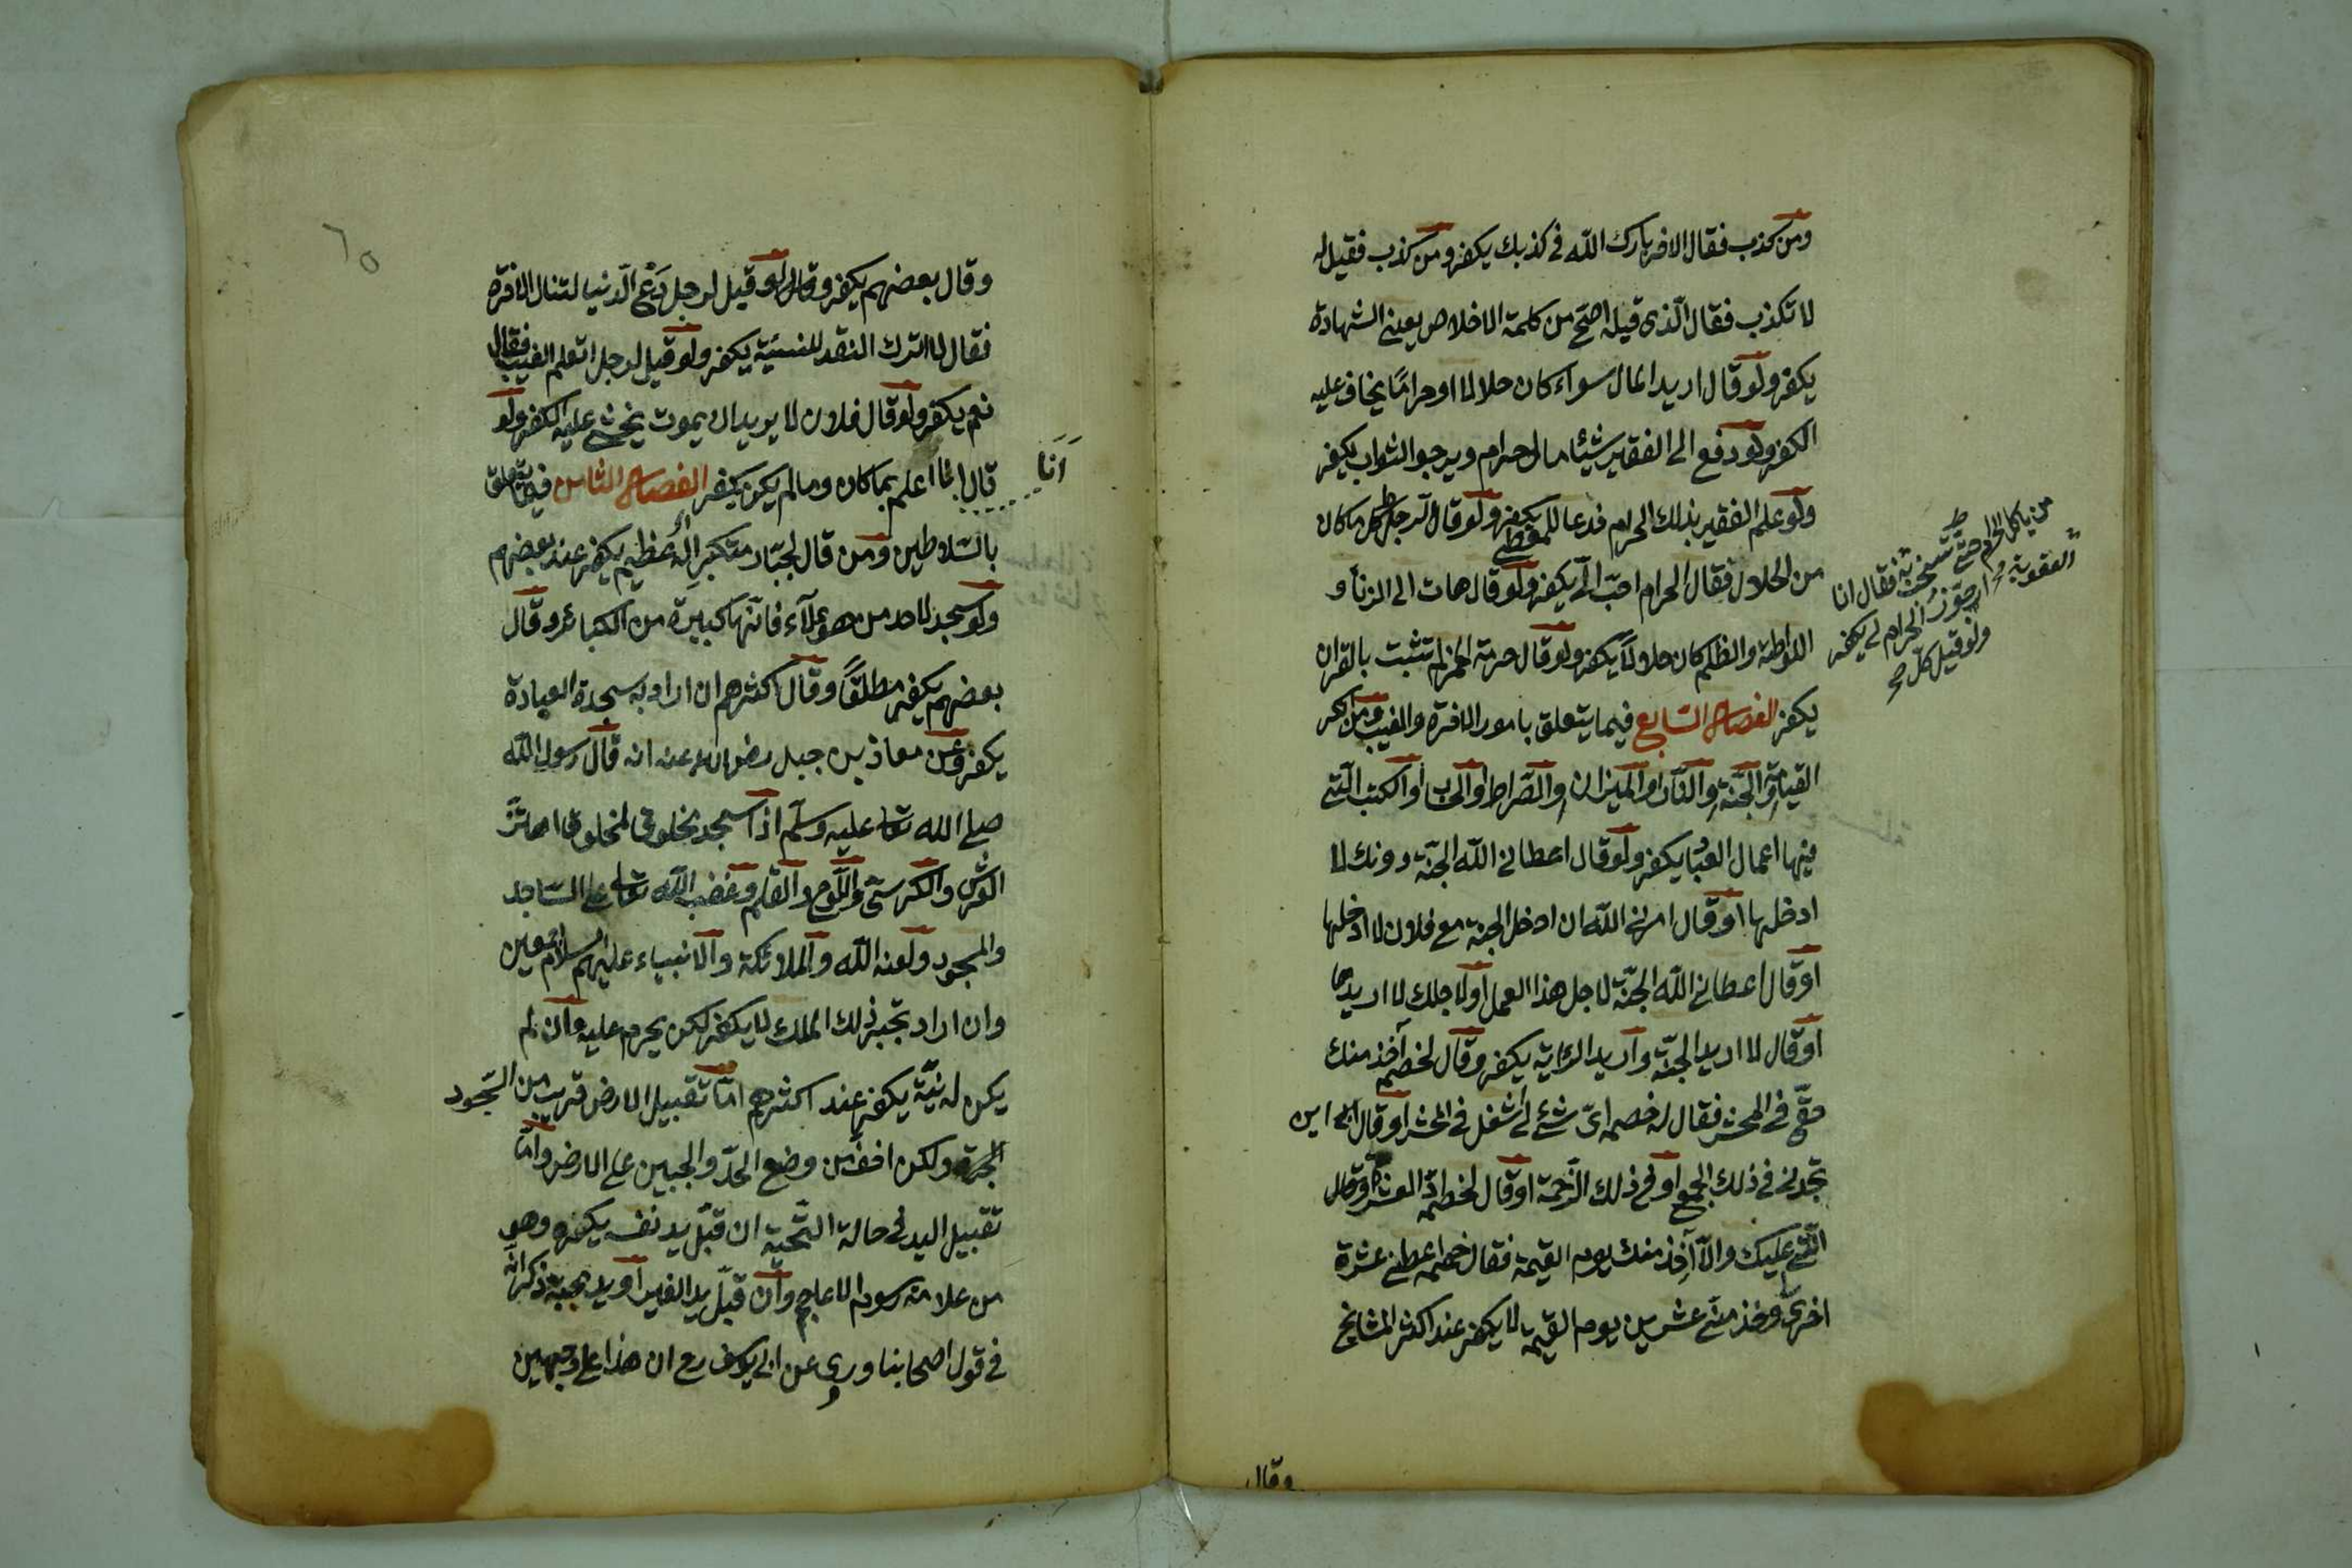 ومن كذب فقال الاخر بارك الله فى كذبك يكفر ومن كذب فقيل له
لا تكذب فقال الّذى قيله اصحّ من كلمة الاخلاص يعنى الشهادة
يكفر ولو قال اريد المال سواء كان حلالا او حرامًا يخاف عليه
الكفر ولو دفع الى الفقير شيئا مال حرام ويرجو الثواب يكفر
ولو علم الفقير بذلك الحرام فدعا للمعطى يكفر ولو قال لرجل كل ما كان
من الحلال فقال الحرام احبّ الىّ يكفر ولو قال هات الى الزنا و
اللواطة والظلم كان حلالاً يكفر ولو قال حرمة الخمر لم تثبت بالقران
يكفر الفصل السّابع فيما يتعلق بامور الاخرة والغيب ومن انكر
القيامة والجنّة والنّار او الميزان والصّراط او الحساب او الكتب الّتى
فيها اعمال العباد يكفر ولو قال اعطانى الله الجنّة دونك لا
ادخلها او قال امرنى الله ان ادخل الجنة مع فلان لا ادخلها
او قال اعطانى الله الجنّة لاجل هذا العمل او لاجلك لا اريدها
او قال لا اريد الجنّة واريد الرؤاية يكفر وقال لخصمه آخذ منك
حقّى فى المحشر فقال له خصمه اىّ شئ لى اشغل فى المحشر او قال اين
تجدنى فى ذلك الجمع او فى ذلك الزّحمة او قال لخصمه ادّ العشرة وقال
الّتى عليك والّا آخذ منك يوم القيمة فقال خصمه اعطنى عشرة
اخرى وخذ منّى عشرين يوم القيمة لا يكفر عند اكثر المشايخ
وقال
من ياكل الحرام حتى
العقوبة فقال انا
الحرام لى يكفر
ولو قيل كل
٦٥
وقال بعضهم يكفر وقال لو قيل لرجل دَعْ الّدنيا لتنال الاخرة
فقال لا اترك النقد للنسيئة يكفر ولو قيل لرجل اتعلم الغيب فقال
نعم يكفر ولو قال فلان لا يريد ان يموت يخشى عليه الكفر ولو
قال انا اعلم بما كان وما لم يكن يكفر الفصل الثامن فيما يتعلق
اَنَا
بالسّلاطين ومن قال لجبّار متكبر اله عظيم يكفر عند بعضهم
ولو سجد لاحد من هؤلاء فانّها كبيرة من الكبائر وقال
بعضهم يكفر مطلقًا وقال اكثرهم ان اراد به سجدة العبادة
يكفر وعن معاذ بن جبل رضى الله عنه انه قال رسول الله
صلى الله تعالى عليه وسلّم اذا سجد مخلوق لمخلوق اهتزّ
العرش والكرسىّ واللّوح والقلم وغضب الله تعالى على السّاجد
والمسجود ولعنه الله والملائكة والانبياء عليهم السلام اجمعين
وان اراد تحية ذلك الملك لا يكفر لكن يحرم عليه وان لم
يكن له نيّة يكفر عند اكثرهم امّا تقبيل الارض قريب من السّجود
ولكن اخف من وضع الخدّ والجبين على الارض وامّا
تقبيل اليد فى حالة التّحيّة ان قبّل يد نفسه يكره وهو
من علامة رسوم الاعاجم وان قبّل يد الغير او يد محبّه ذكر انّه
فى قول اصحابنا وروى عن ابى يوسف رح ان هذا على وجهين